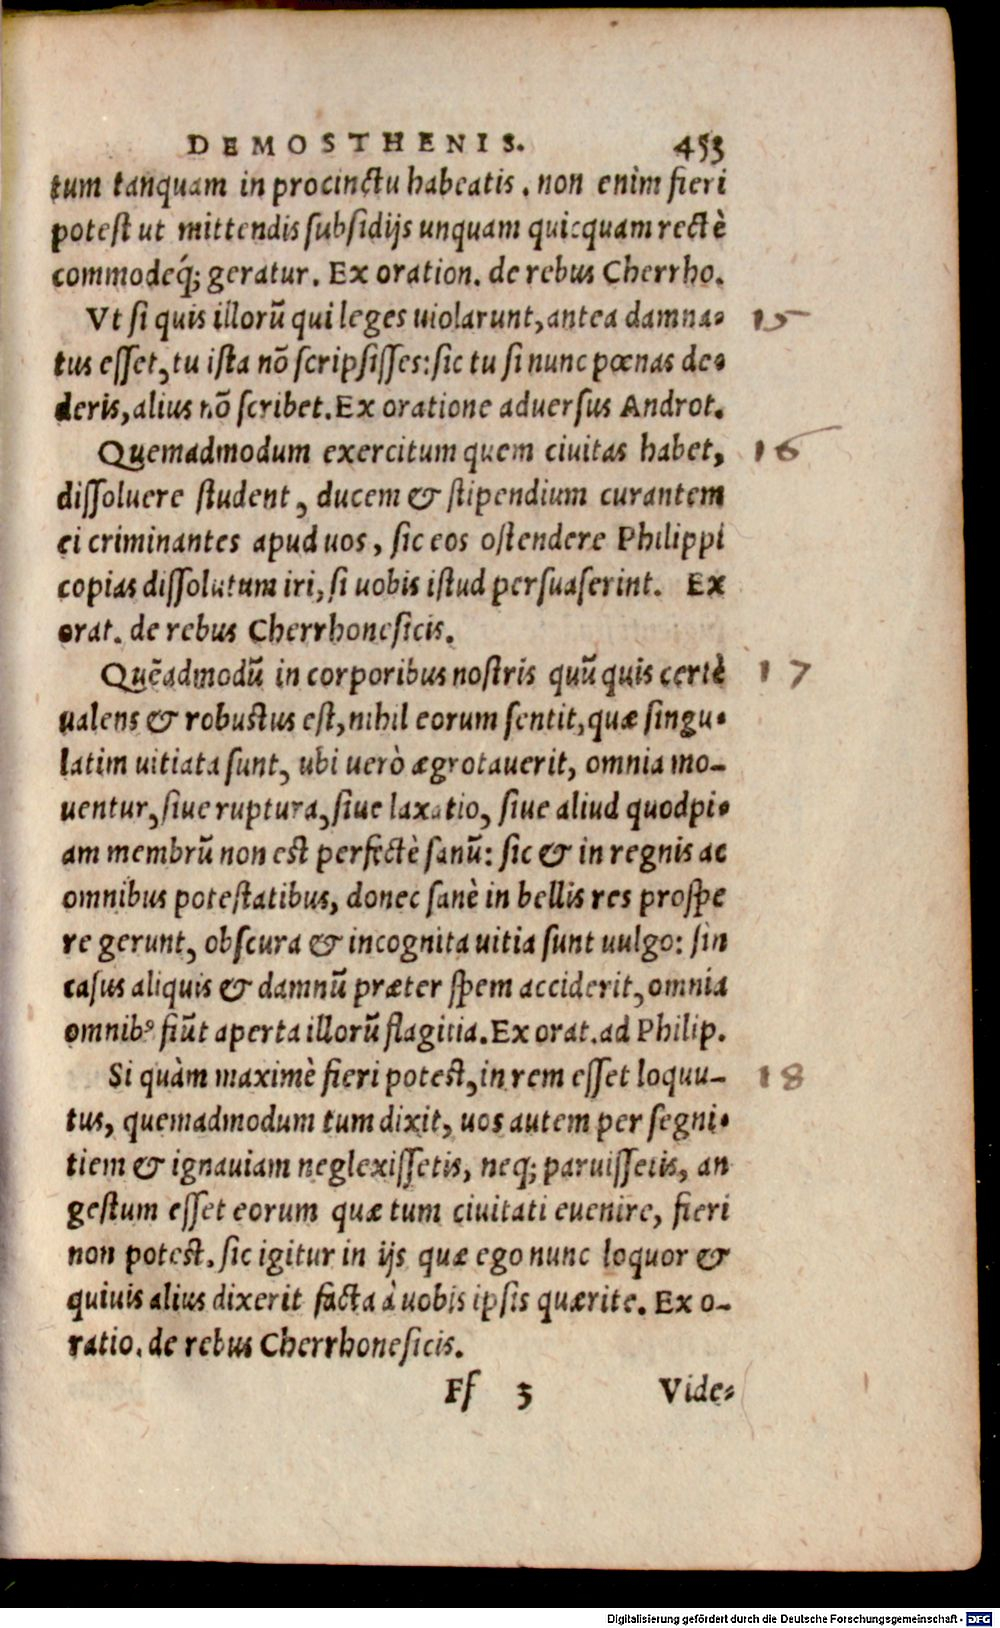 DEMOSTHENIS. 453
tum tanquam in procinctu habeatis. non enim fieri
potest ut mittendis subsidijs unquam quicquam rectè
commodeq́; geratur. Ex oration. de rebus Cherrho.
Vt si quis illorū qui leges uiolarunt, antea damna- 15
tus esset, tu ista nō scripsisses: sic tu si nunc pœnas de-
deris, alius nō scribet. Ex oratione aduersus Androt.
Quemadmodum exercitum quem ciuitas habet, 16
dissoluere student, ducem & stipendium curantem
ei criminantes apud uos, sic eos ostendere Philippi
copias dissolutum iri, si uobis istud persuaserint. Ex
orat. de rebus Cherrhonesicis.
Quēadmodū in corporibus nostris quū quis certè 17
ualens & robustus est, nihil eorum sentit, quæ singu-
latim uitiata sunt, ubi uerò ægrotauerit, omnia mo-
uentur, siue ruptura, siue laxatio, siue aliud quodpi-
am membrū non est perfectè sanū: sic & in regnis ac
omnibus potestatibus, donec sanè in bellis res prospe
re gerunt, obscura & incognita uitia sunt uulgo: sin
casus aliquis & damnū præter spem acciderit, omnia
omnibꝰ fiūt aperta illorū flagitia. Ex orat. ad Philip.
Si quàm maximè fieri potest, in rem esset loquu- 18
tus, quemadmodum tum dixit, uos autem per segni-
tiem & ignauiam neglexissetis, neq; paruissetis, an
gestum esset eorum quæ tum ciuitati euenire, fieri
non potest. sic igitur in ijs quæ ego nunc loquor &
quiuis alius dixerit facta à uobis ipsis quærite. Ex o-
ratio. de rebus Cherrhonesicis.
Ff 3 Vide-
Digitalisierung gefördert durch die Deutsche Forschungsgemeinschaft - DFG